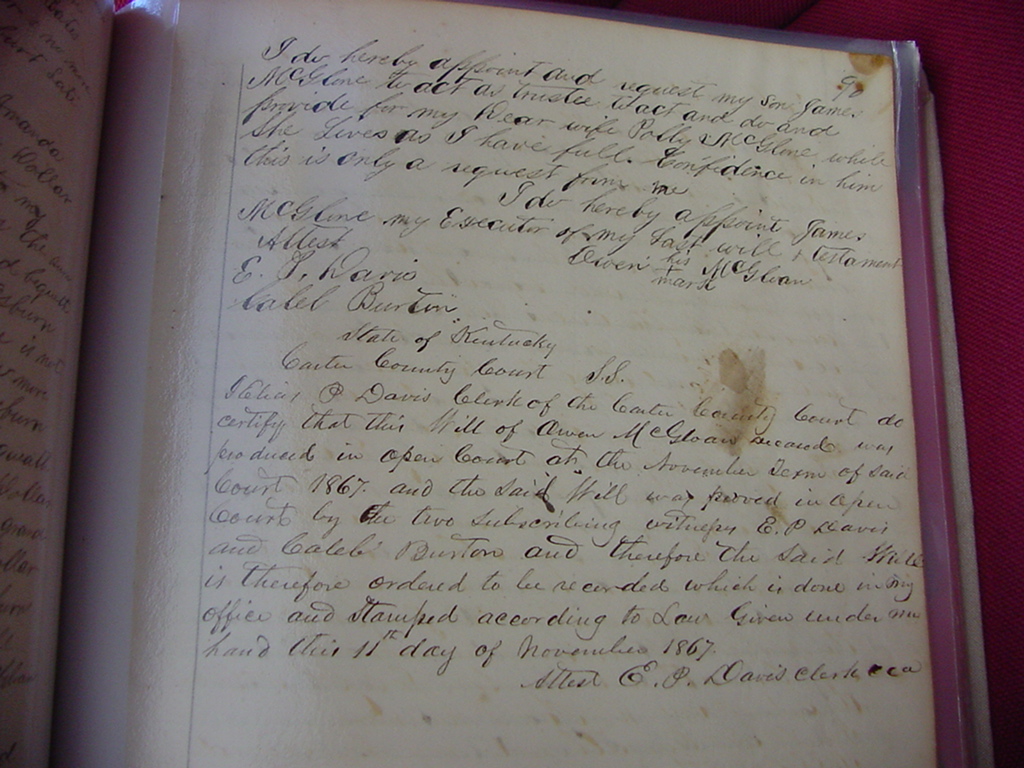 I do hereby appoint and request my Son James
McGlone to act as trustee to act and do and
provide for my Dear wife Polly McGlone while
She Lives as I have full Confidence in him
this is only a request from me
I do hereby appoint James
McGlone my Executor of my Last will & testament
Attest
Owen his + mark McGloan
E. P. Davis
Caleb Burton
State of Kentucky
Carter County Court S.S.
I Elias P Davis Clerk of the Carter County Court do
certify that this Will of Owen McGloan deceased was
produced in open Court at the November Term of said
Court 1867. and the said Will was proved in open
Court by the two subscribing witnesses E. P. Davis
and Caleb Burton and therefore the said Will
is therefore ordered to be recorded which is done in my
office and Stamped according to Law Given under my
hand this 11th day of November 1867.
Attest E. P. Davis clerk
Amanda
Dollar